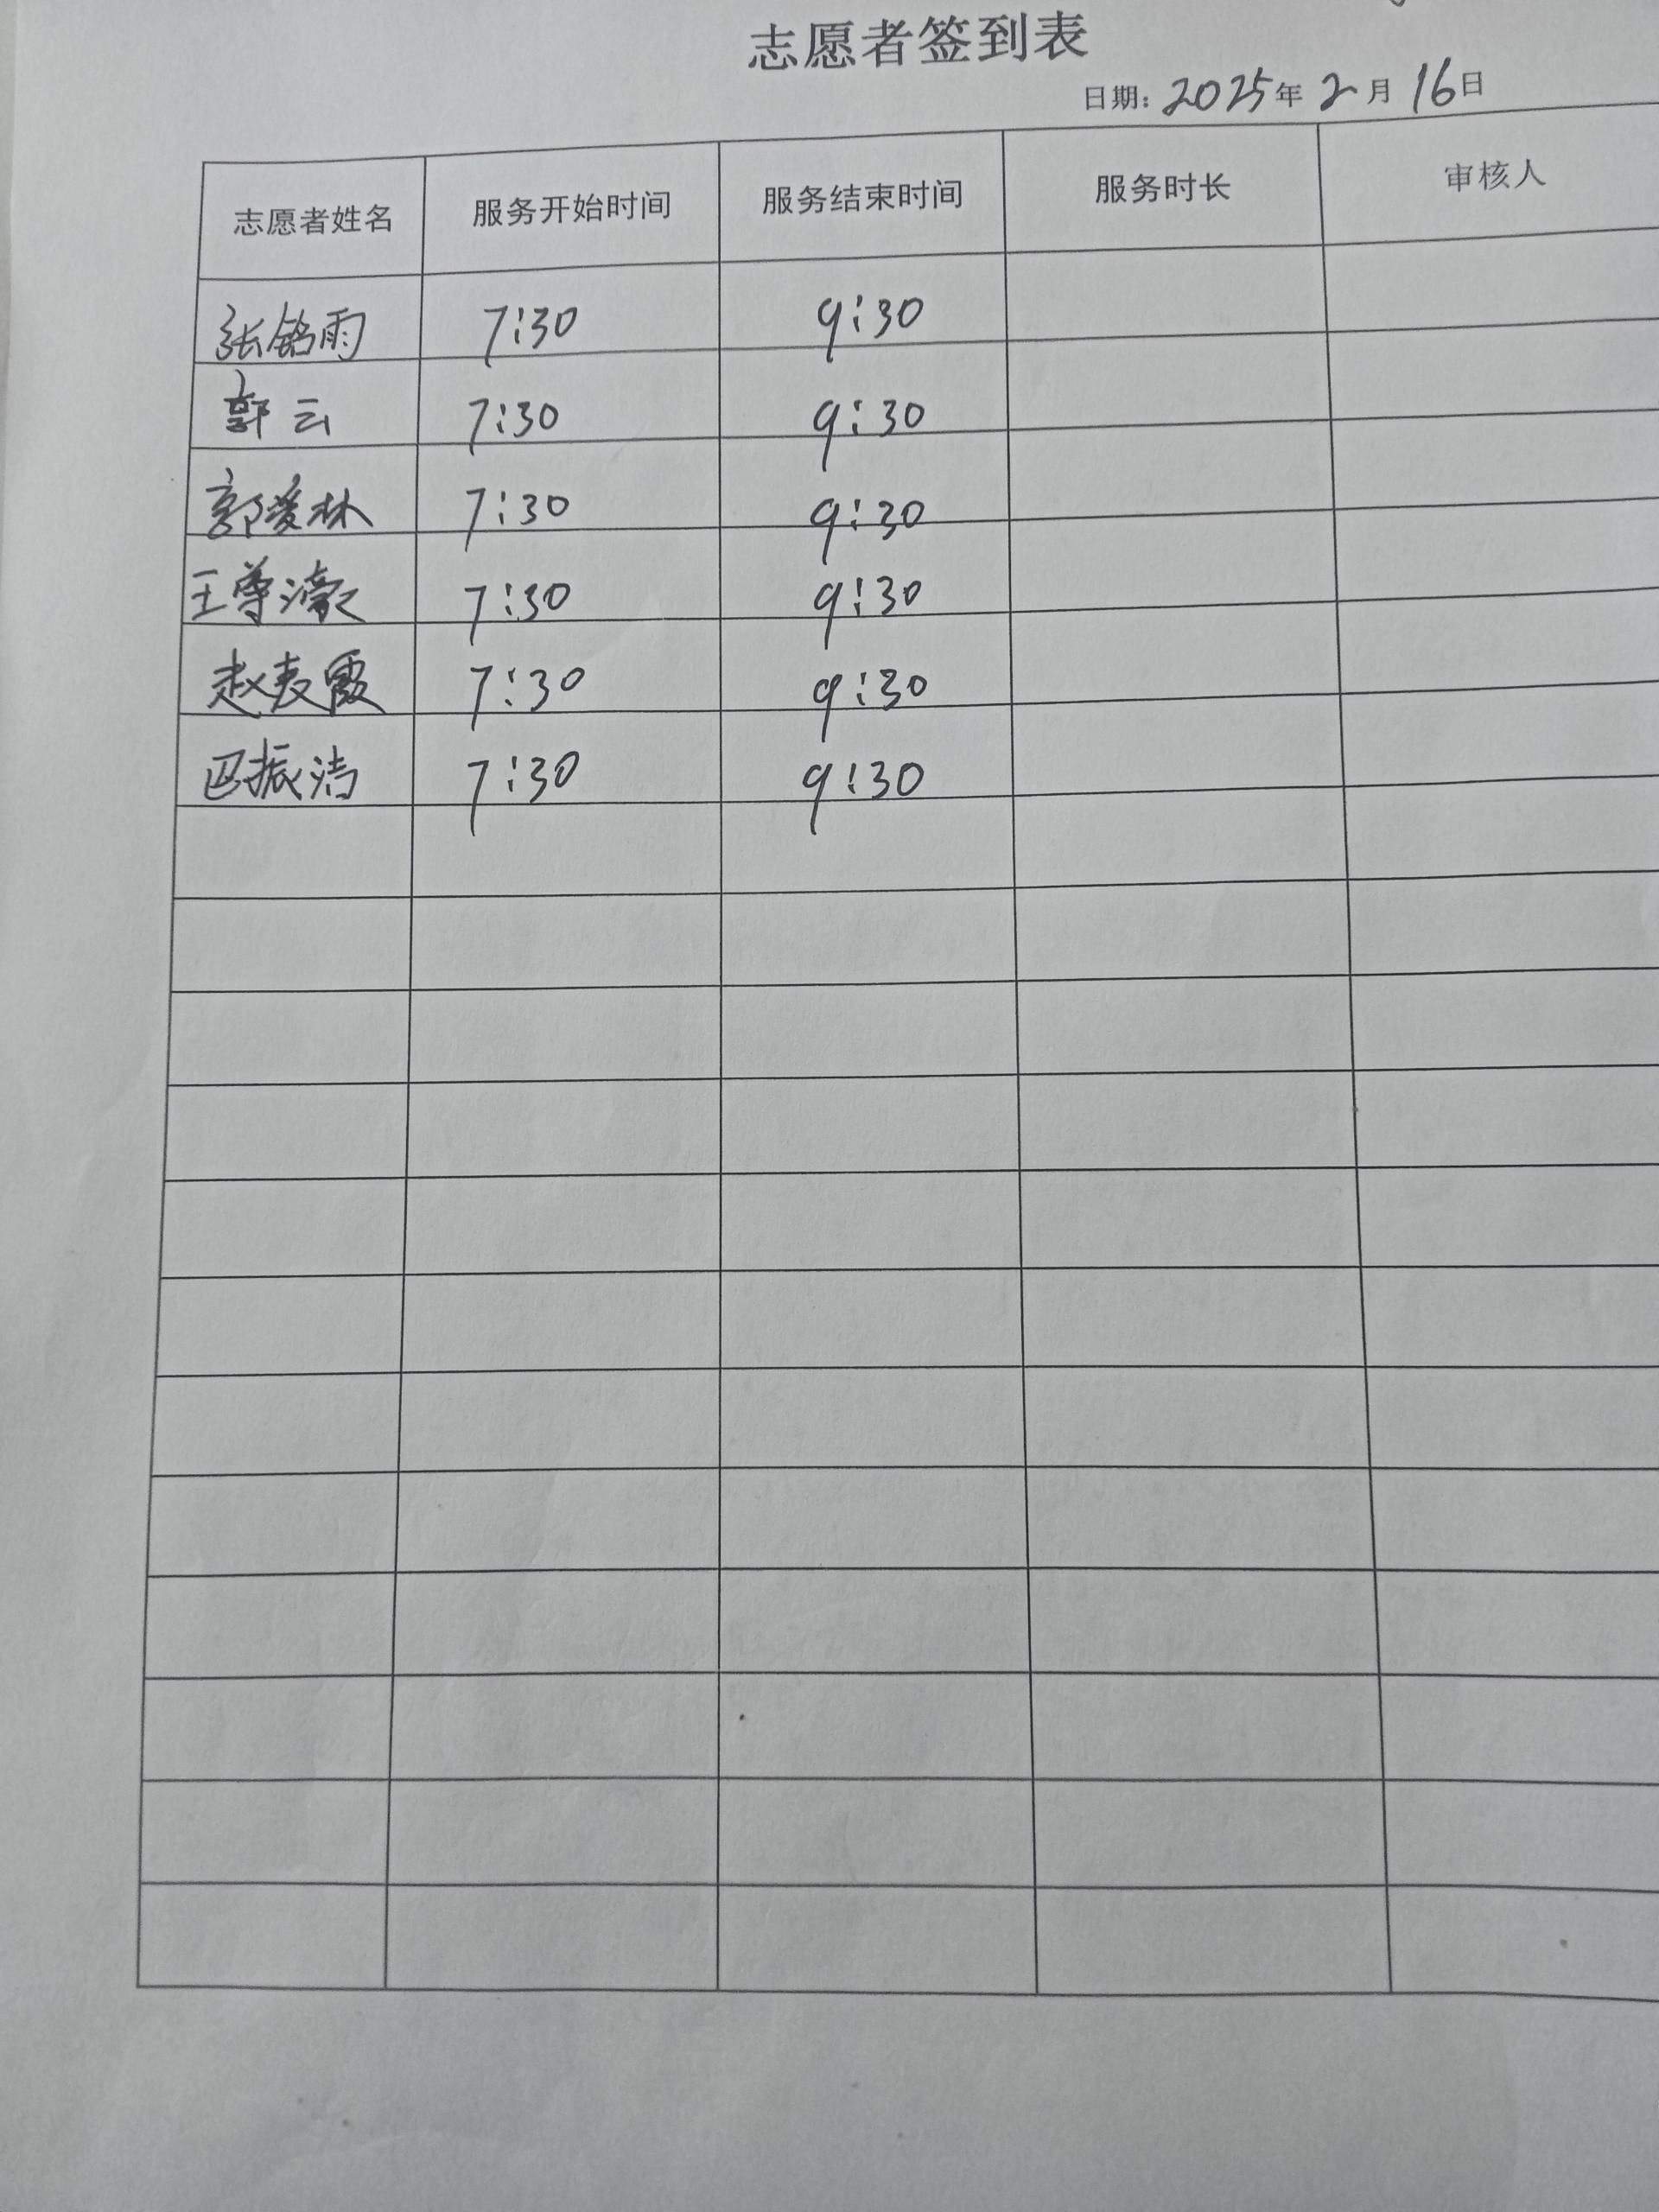 志愿者签到表
日期: 2025年 2月 16日
志愿者姓名 服务开始时间 服务结束时间 服务时长 审核人
张铭雨 7:30 9:30
郭云 7:30 9:30
郭爱林 7:30 9:30
王尊濠 7:30 9:30
赵表霞 7:30 9:30
巴振洁 7:30 9:30